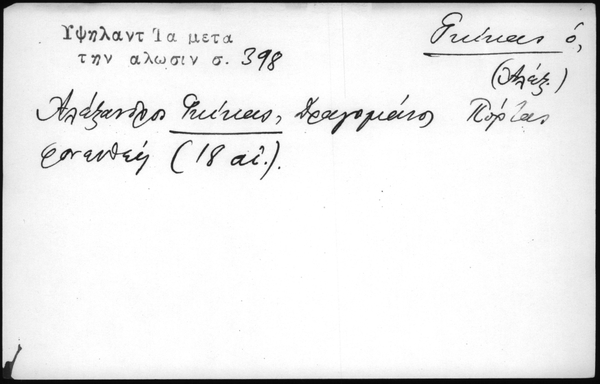 Υψηλαντ Τα μετα
την αλωσιν σ. 398
Γκίκας ὁ,
(Ἀλέξ.)
Ἀλέξανδρος Γκίκας, δραγομάνος Πόρτας
φονευθείς (18 αἰ.).